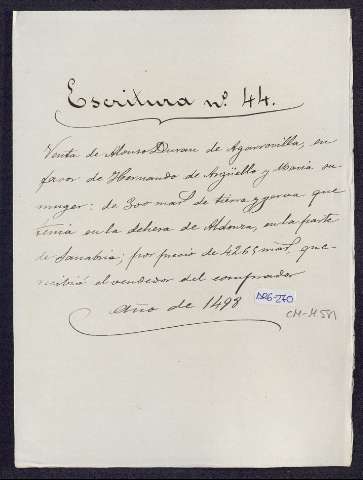 Escritura nº 44.
Venta de Alonso Duran de Agarronilla, en
favor de Hernando de Arguello y Maria su
muger: de 300 mars de tierra y yerva que
tenia en la dehesa de Aldonza, en la parte
de Sanabria; por precio de 4265 mars que
recibió el vendedor del comprador
Año de 1498
D26-270
CM-M 581